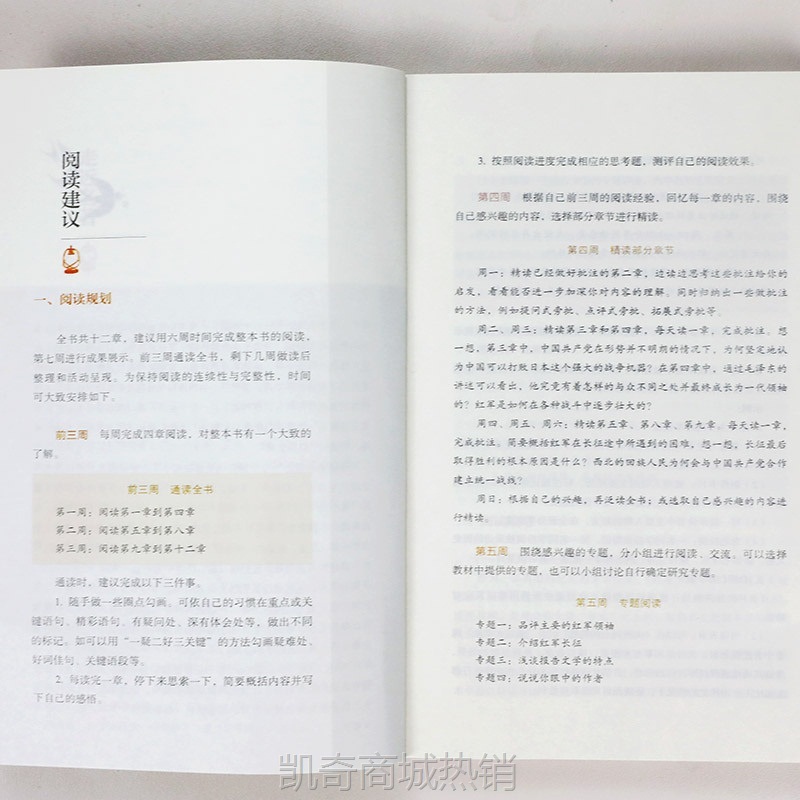 阅读建议
一、阅读规划
全书共十二章，建议用六周时间完成整本书的阅读，
第七周进行成果展示。前三周通读全书，剩下几周做读后
整理和活动呈现。为保持阅读的连续性与完整性，时间
可大致安排如下。
前三周 每周完成四章阅读，对整本书有一个大致的
了解。
前三周 通读全书
第一周：阅读第一章到第四章
第二周：阅读第五章到第八章
第三周：阅读第九章到第十二章
通读时，建议完成以下三件事。
1. 随手做一些圈点勾画。可依自己的习惯在重点或关
键语句、精彩语句、有疑问处、深有体会处等，做出不同
的标记。如可以用“一疑二好三关键”的方法勾画疑难处、
好词佳句、关键语段等。
2. 每读完一章，停下来思索一下，简要概括内容并写
下自己的感悟。
3. 按照阅读进度完成相应的思考题，测评自己的阅读效果。
第四周 根据自己前三周的阅读经验，回忆每一章的内容，围绕
自己感兴趣的内容，选择部分章节进行精读。
第四周 精读部分章节
周一：精读已经做好批注的第二章，边读边思考这些批注给你的
启发，看看能否进一步加深你对内容的理解。同时归纳出一些做批注
的方法，例如提问式旁批、点评式旁批、拓展式旁批等。
周二、周三：精读第三章和第四章，每天读一章，完成批注。想
一想，第三章中，中国共产党在形势并不明朗的情况下，为何坚定地认
为中国可以打败日本这个强大的战争机器？在第四章中，通过毛泽东的
讲述可以看出，他究竟有着怎样的与众不同之处并最终成长为一代领袖
的？红军是如何在各种战斗中逐步壮大的？
周四、周五、周六：精读第五章、第八章、第九章。每天读一章，
完成批注。简要概括红军在长征途中所遇到的困难，想一想，长征最后
取得胜利的根本原因是什么？西北的回族人民为何会与中国共产党合作
建立统一战线？
周日：根据自己的兴趣，再泛读全书；或选取自己感兴趣的内容进
行精读。
第五周 围绕感兴趣的专题，分小组进行阅读、交流。可以选择
教材中提供的专题，也可以小组讨论自行确定研究专题。
第五周 专题阅读
专题一：品评主要的红军领袖
专题二：介绍红军长征
专题三：浅谈报告文学的特点
专题四：说说你眼中的作者
凯奇商城热销